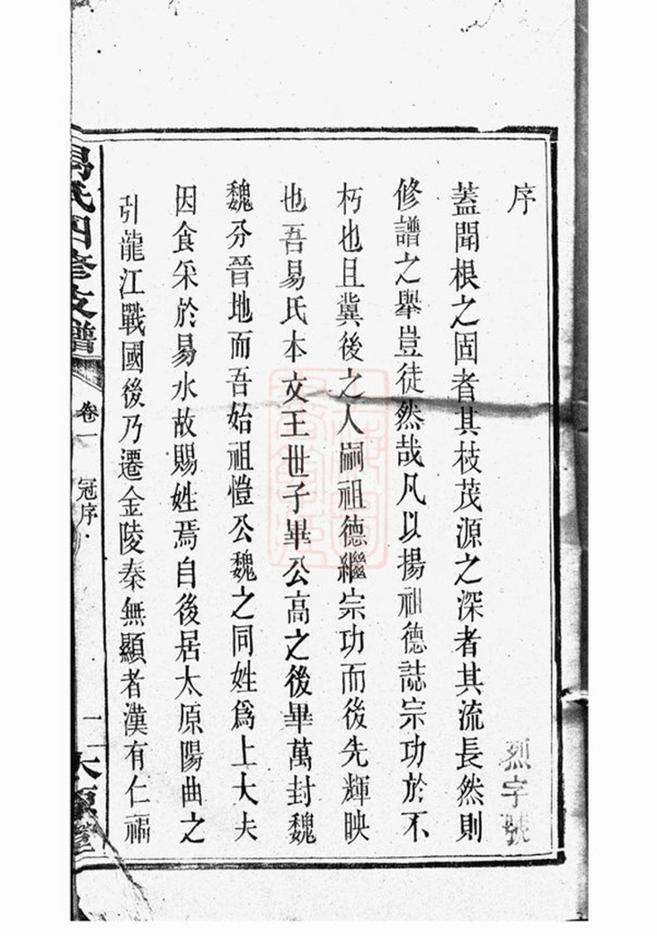 序
烈字號
蓋聞根之固者其枝茂源之深者其流長然則
修譜之舉豈徒然哉凡以揚祖德誌宗功於不
朽也且冀後之人嗣祖德繼宗功而後先輝映
也吾易氏本文王世子畢公高之後畢萬封魏
魏分晉地而吾始祖愷公魏之同姓為上大夫
因食采於易水故賜姓焉自後居太原陽曲之
引龍江戰國後乃遷金陵秦無顯者漢有仁禤
易氏四修支譜
卷一
冠序
一
太原堂